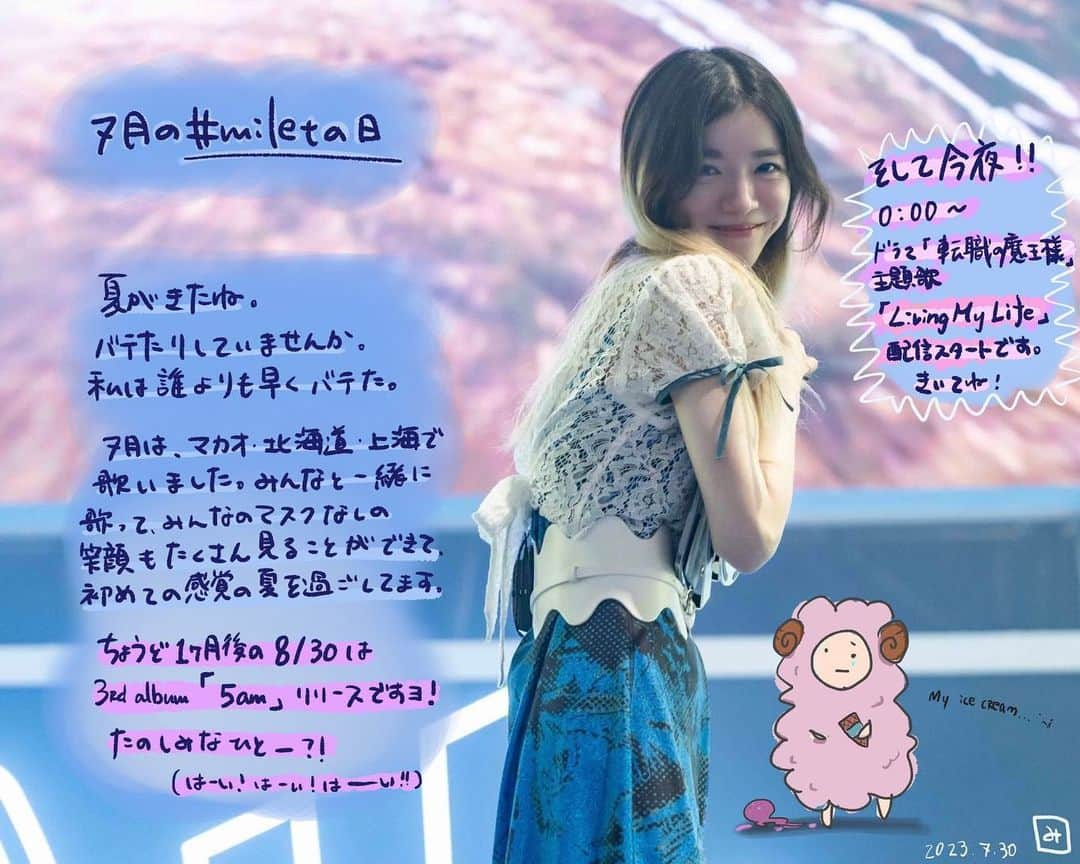 7月の#miletの日
夏がきたね。
バテたりしていませんか。
私は誰よりも早くバテた。
7月は、マカオ・北海道・上海で
歌いました。みんなと一緒に
歌って、みんなのマスクなしの
笑顔もたくさん見ることができて、
初めての感覚の夏を過ごしてます。
ちょうど1ヶ月後の8/30は
3rd album「5am」リリースですヨ!
たのしみなひとー?!
(はーい!はーい!はーい!!)
そして今夜!!
0:00〜
ドラマ「転職の魔王様」
主題歌
「Living My Life」
配信スタートです。
きいてね!
My ice cream... :-;
2023.7.30
み